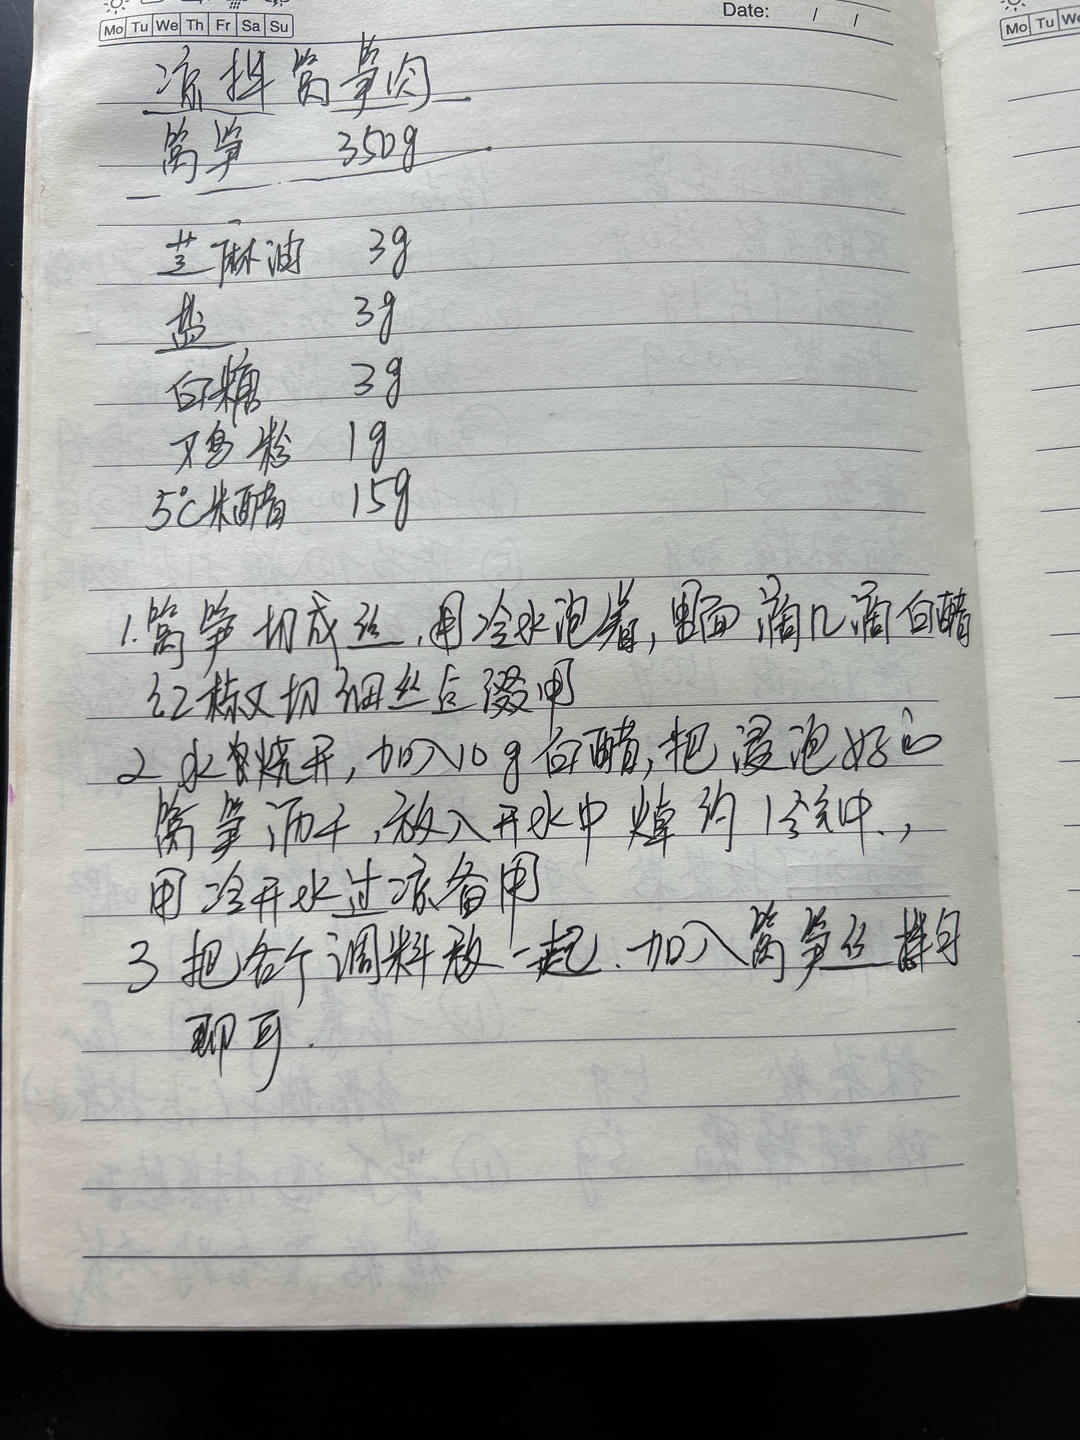 Mo Tu We Th Fr Sa Su
Date: / /
Mo Tu We
凉拌莴笋肉
莴笋 350g
芝麻油 3g
盐 3g
白糖 3g
鸡粉 1g
5℃米醋 15g
1.莴笋切成丝,用冷水泡着,里面滴几滴白醋
红椒切细丝点缀用
2 水烧开,加入10g白醋,把浸泡好的
莴笋沥干,放入开水中焯约1分钟,
用冷开水过凉备用
3 把各个调料放一起.加入莴笋丝拌匀
即可.